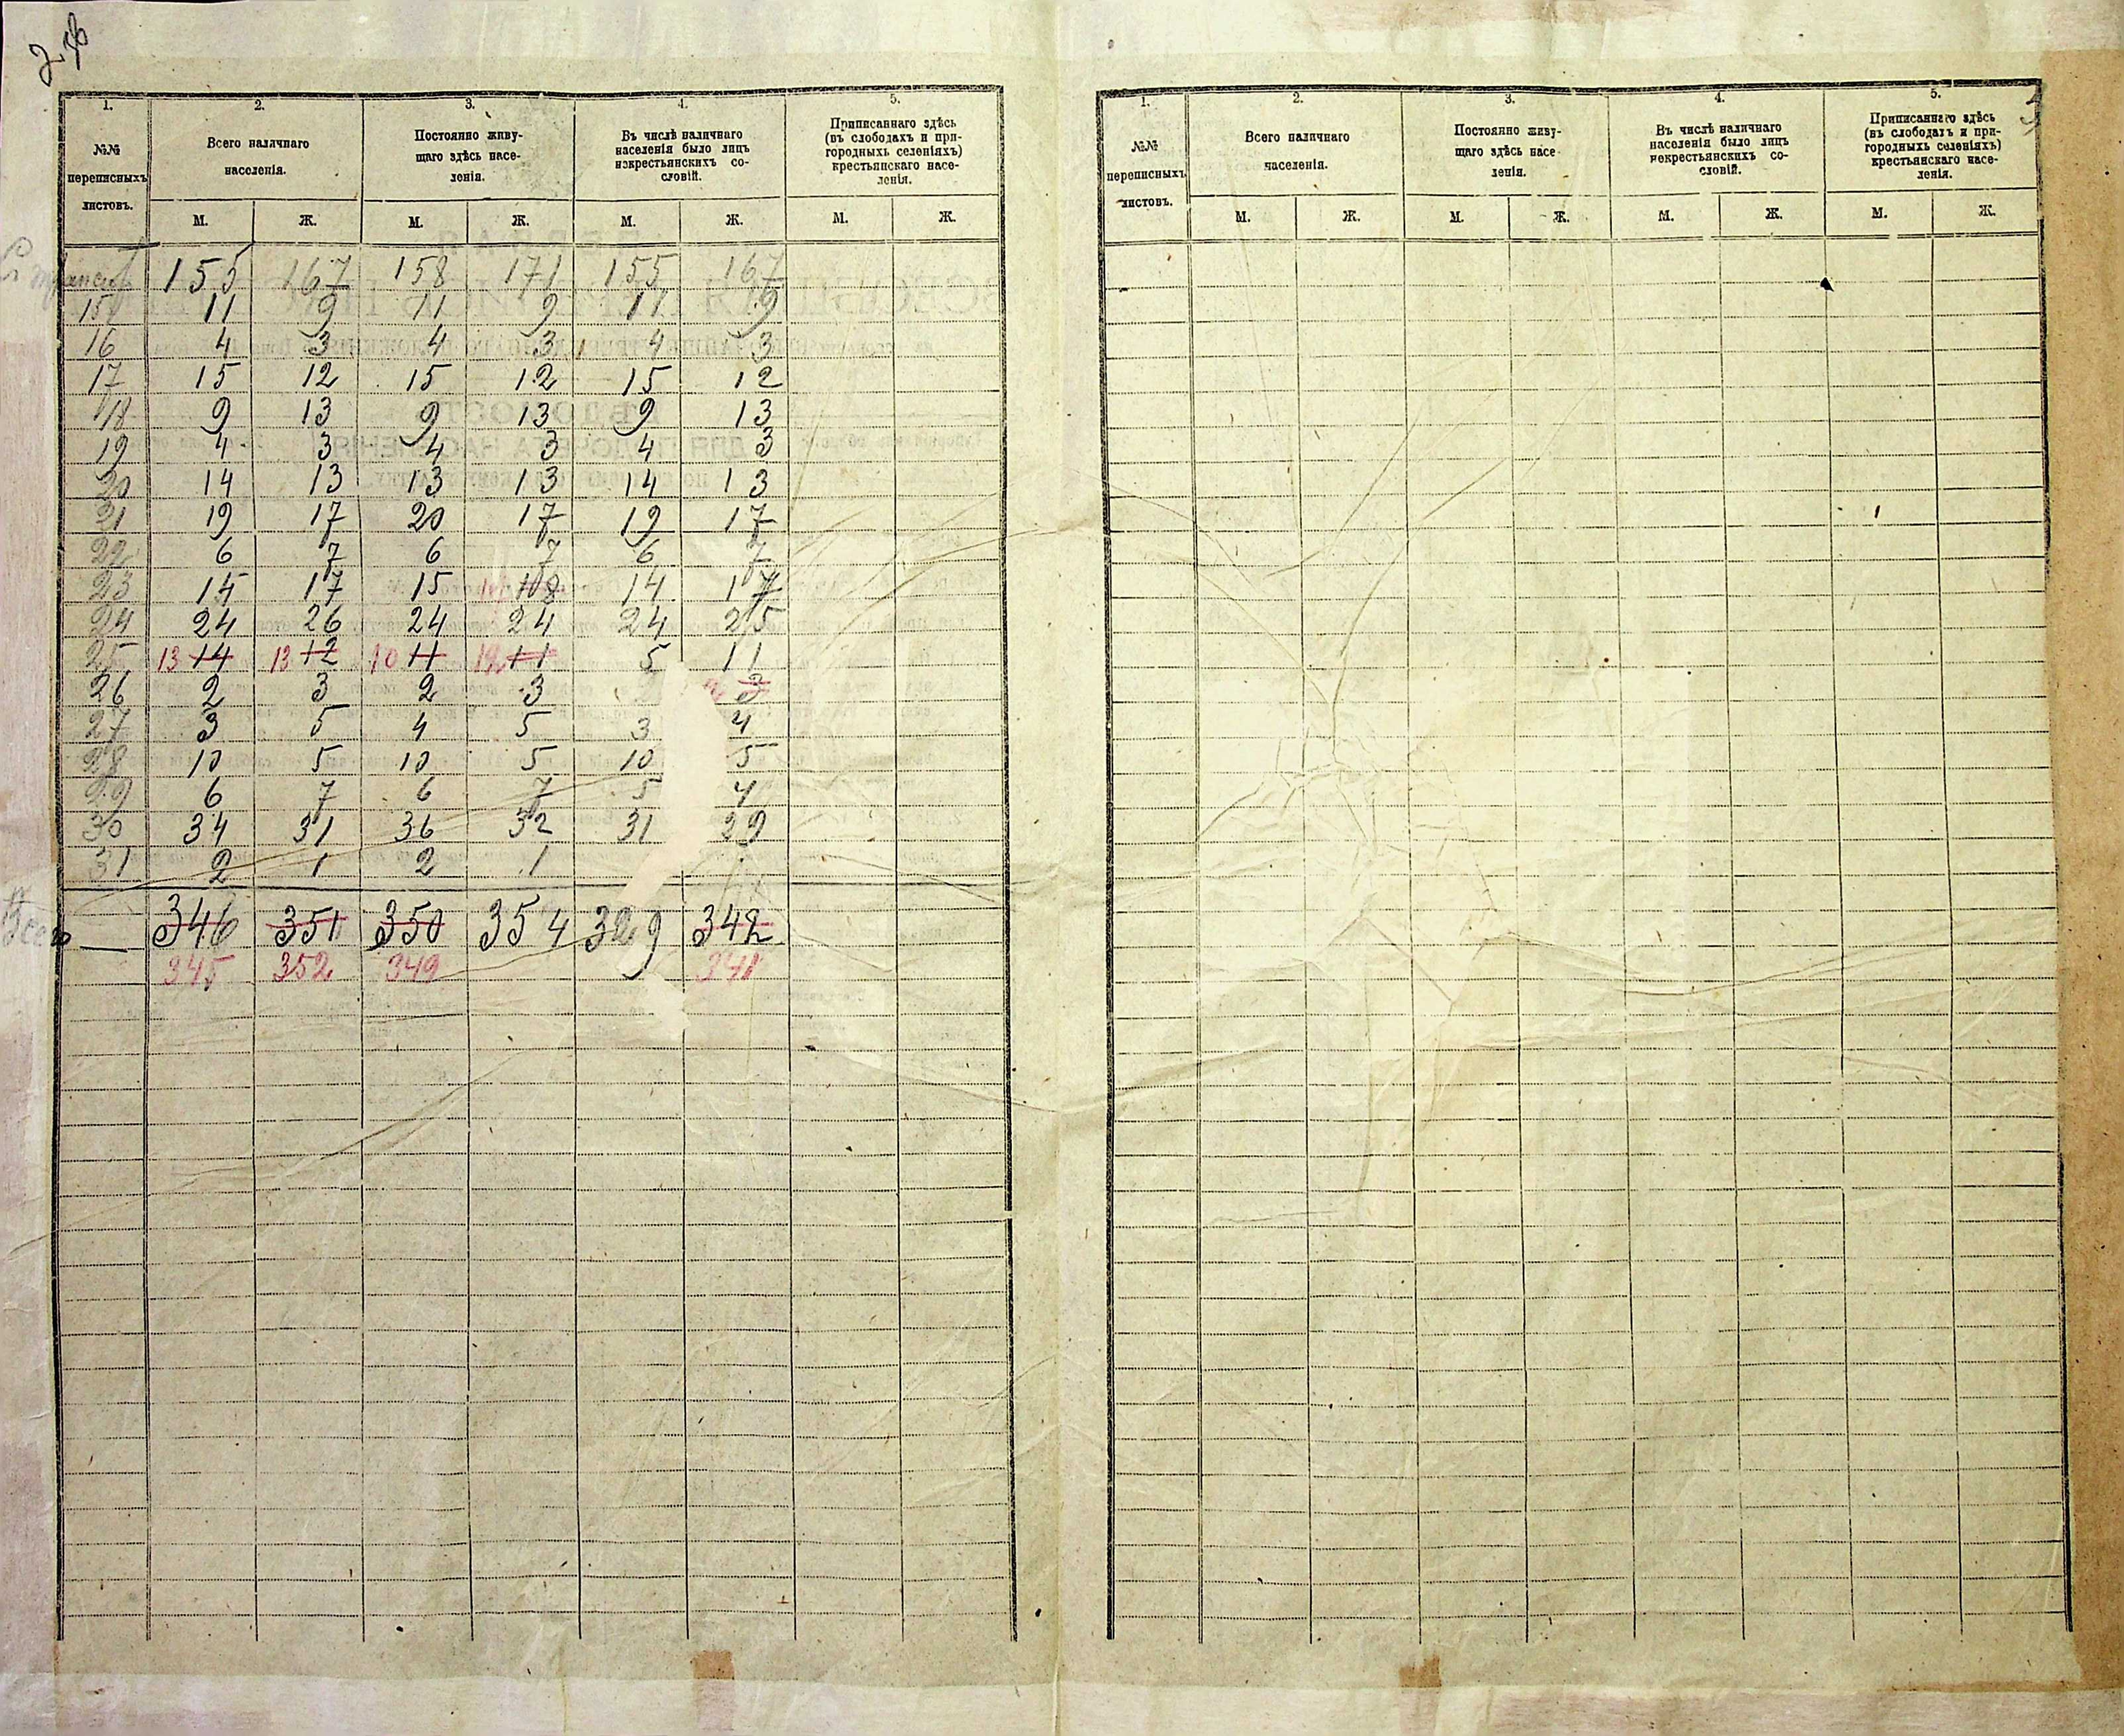 1. 2. 3. 4. 5.
№№ переписныхъ листовъ. Всего наличнаго населенія. Постоянно живу-щаго здѣсь насе-ленія. Въ числѣ наличнаго населенія было лицъ некрестьянскихъ со-словій. Приписаннаго здѣсь (въ слободахъ и при-городныхъ селеніяхъ) крестьянскаго насе-ленія.
М. Ж. М. Ж. М. Ж. М. Ж.
155 167 158 171 155 167
15 11 9 11 9 11 9
16 4 3 4 3 4 3
17 15 12 15 12 15 12
18 9 13 9 13 9 13
19 4 3 4 3 4 3
20 14 13 13 13 14 13
21 19 17 20 17 19 17
22 6 7 6 7 6 7
23 14 17 15 14 17
24 24 26 24 24 24 25
25 13 14 13 12 10 11 12 11 5 11
26 2 3 2 3 2 3
27 3 5 4 5 3 4
28 10 5 10 5 10 5
29 6 7 6 7 5 4
30 34 31 36 32 31 29
31 2 1 2 1
Всего 346 351 350 354 329 342
345 352 349 341
1. 2. 3. 4. 5.
№№ переписныхъ листовъ. Всего наличнаго населенія. Постоянно живу-щаго здѣсь насе-ленія. Въ числѣ наличнаго населенія было лицъ некрестьянскихъ со-словій. Приписаннаго здѣсь (въ слободахъ и при-городныхъ селеніяхъ) крестьянскаго насе-ленія.
М. Ж. М. Ж. М. Ж. М. Ж.